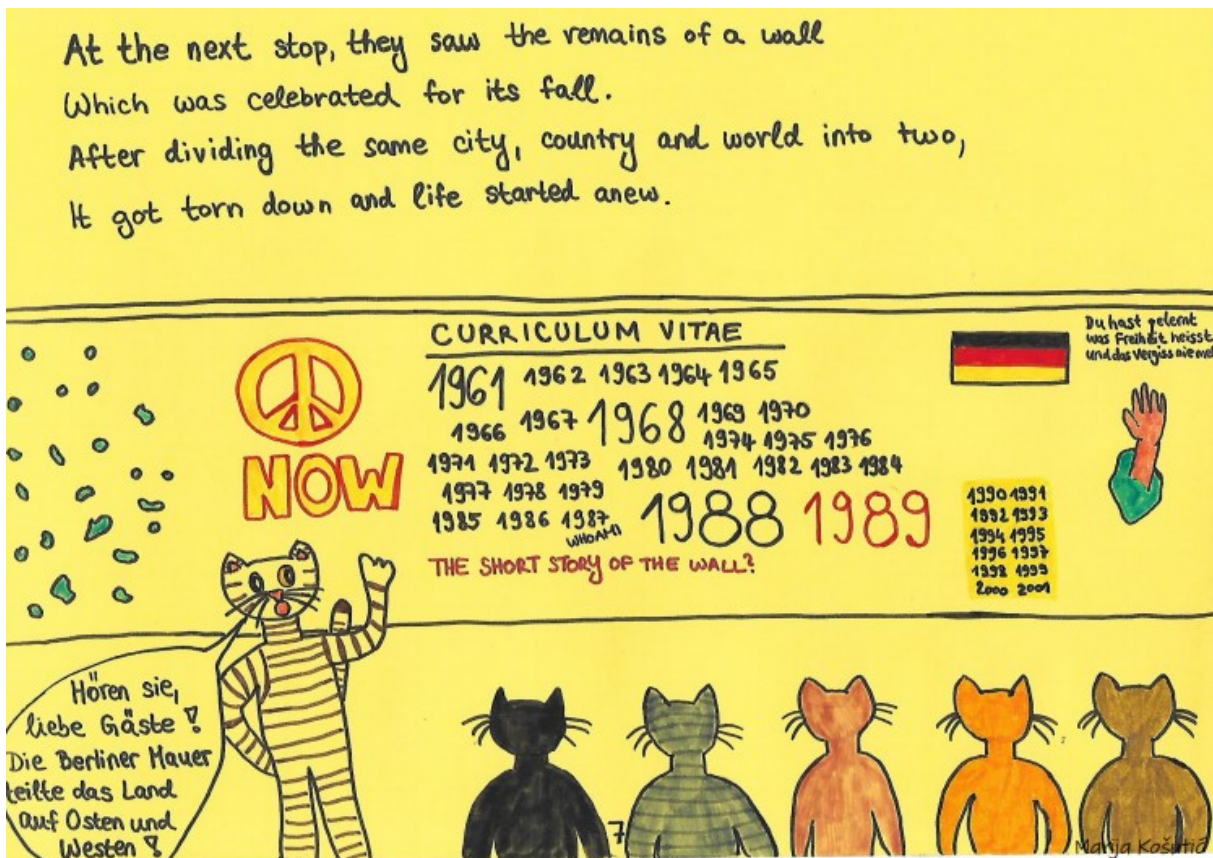 At the next stop, they saw the remains of a wall
Which was celebrated for its fall.
After dividing the same city, country and world into two,
It got torn down and life started anew.
NOW
CURRICULUM VITAE
1961 1962 1963 1964 1965
1966 1967 1968 1969 1970
1974 1975 1976
1971 1972 1973 1980 1981 1982 1983 1984
1977 1978 1979
1985 1986 1987 1988 1989
WHO AM I
THE SHORT STORY OF THE WALL?
Du hast gelernt
was Freiheit heisst
und das vergiss nie
1990 1991
1992 1993
1994 1995
1996 1997
1998 1999
2000 2001
Hören sie,
liebe Gäste!
Die Berliner Mauer
teilte das Land
auf Osten und
Westen!
7
Marija Košutić